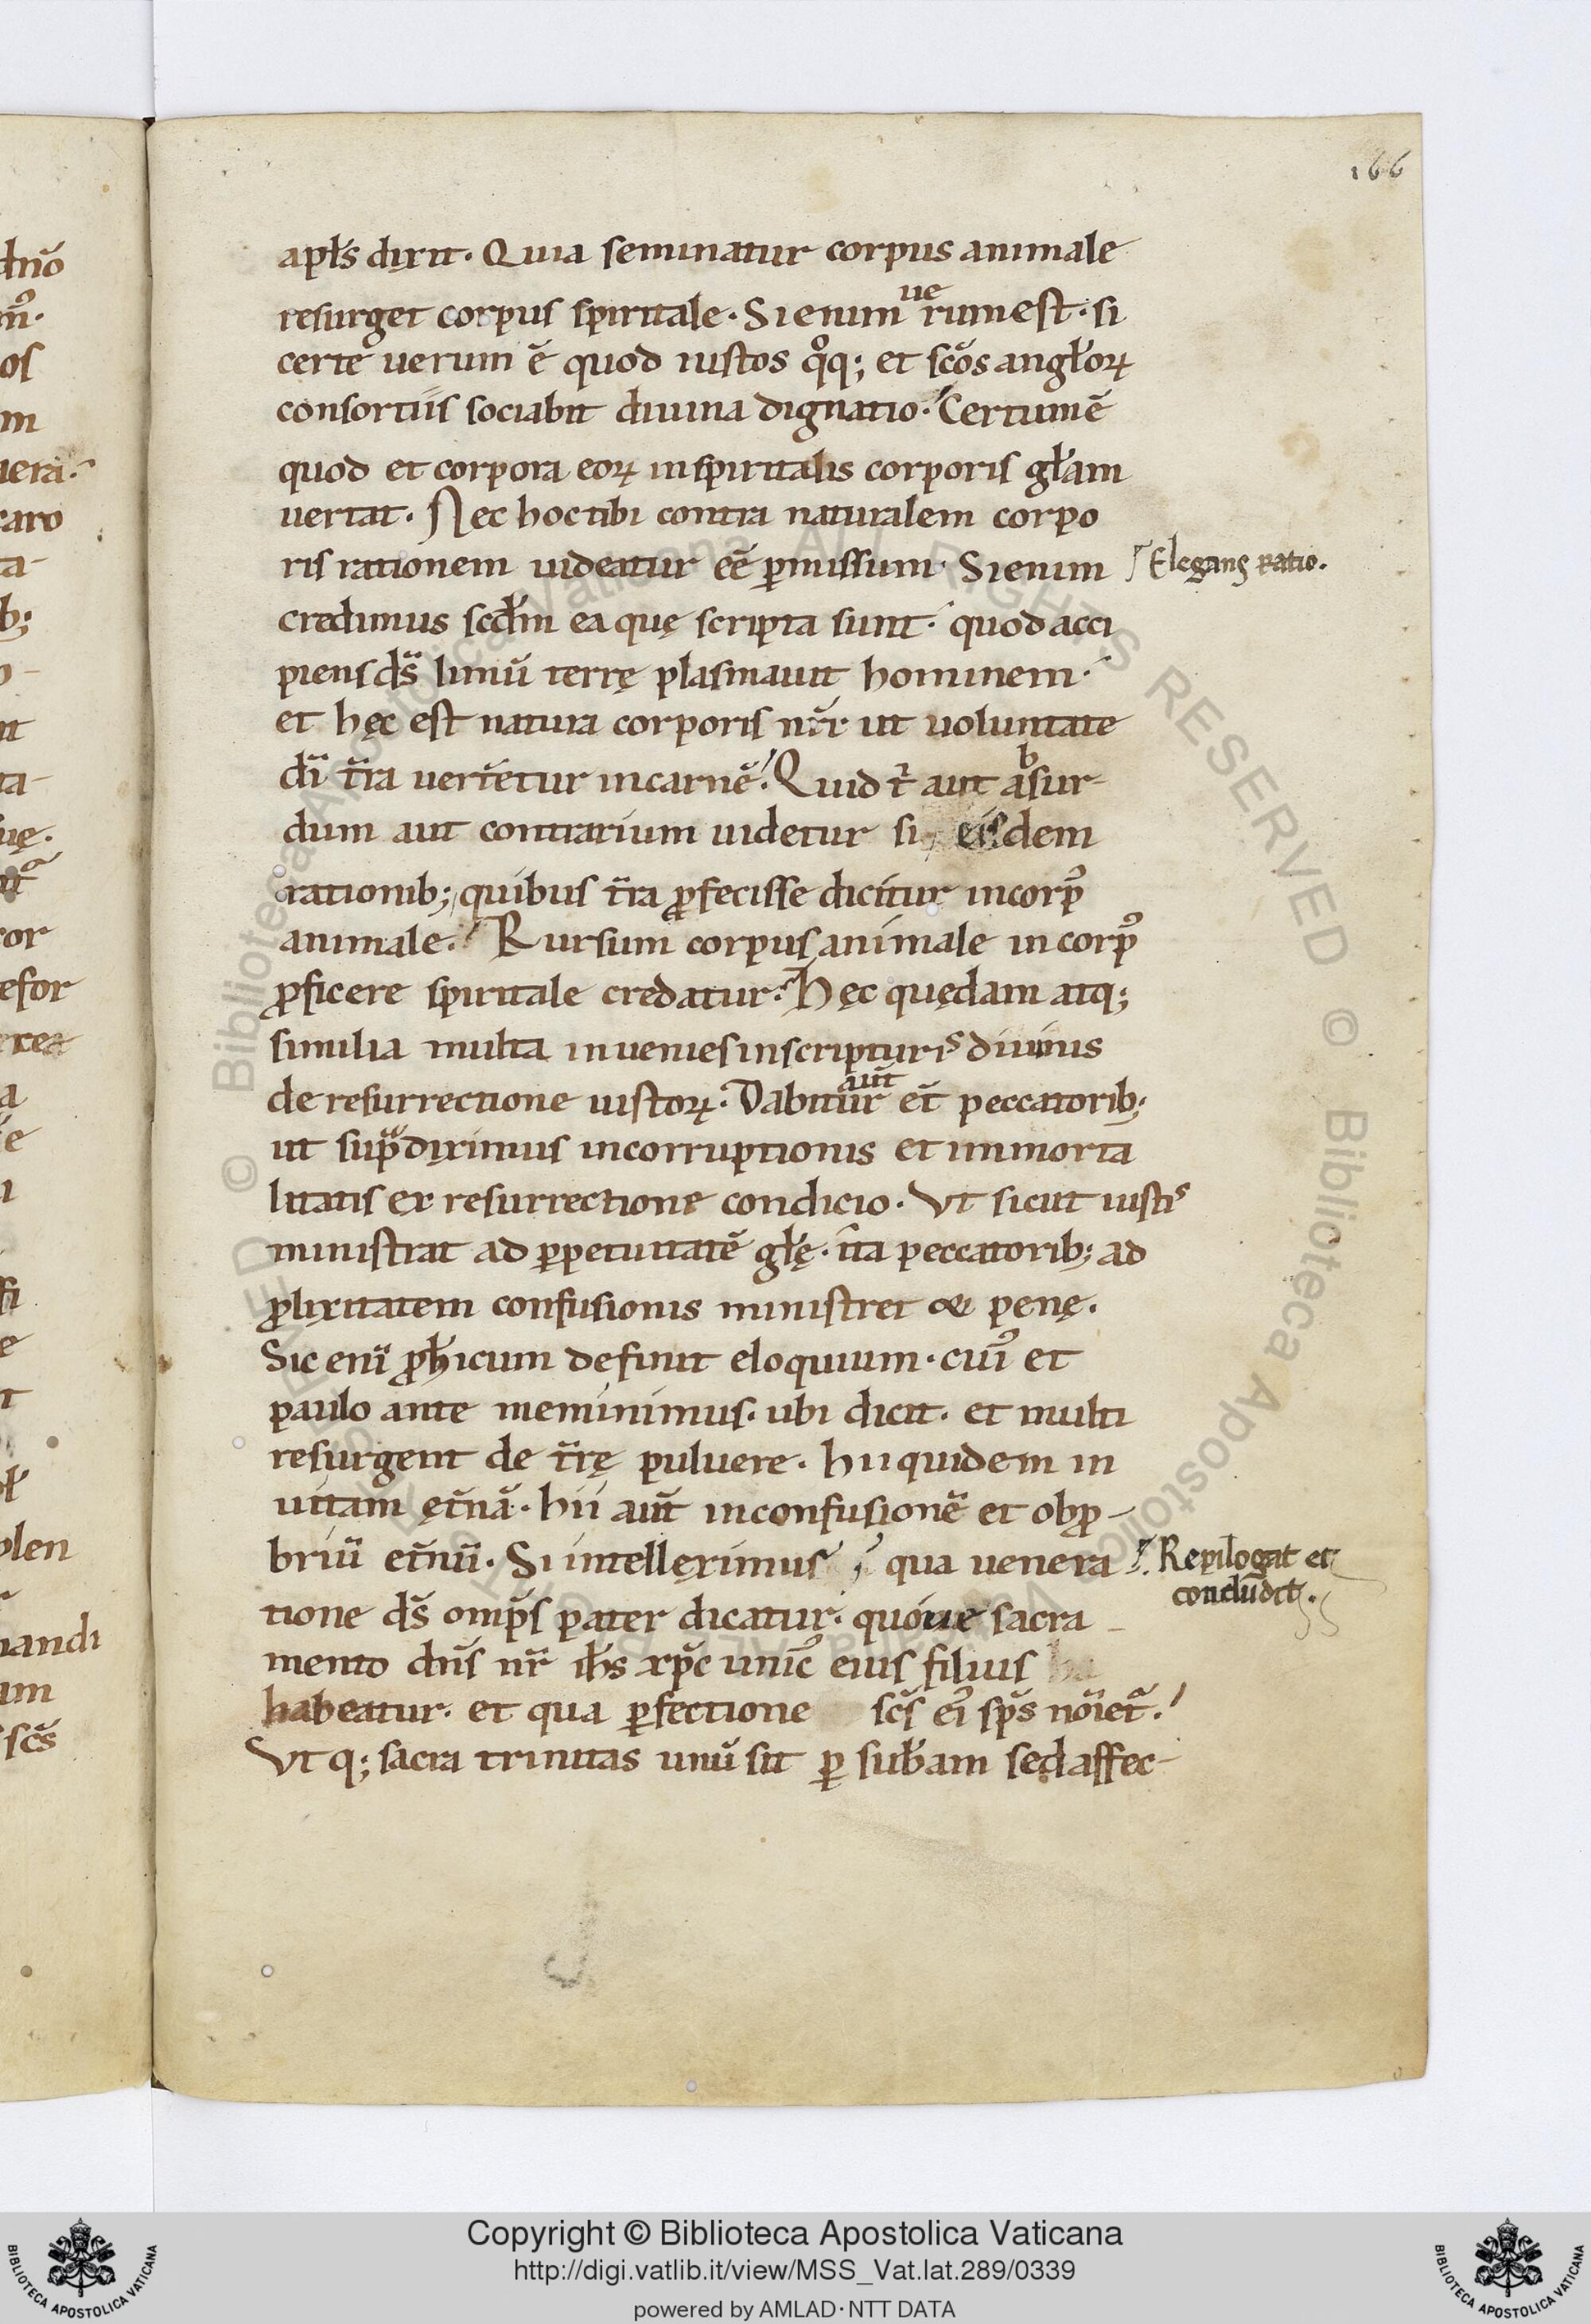 166
apl̃s dixit. Quia seminatur corpus animale
resurget corpus spiritale. Si enim uerum est. si
certe uerum ẽ quod iustos qͦq; et sc̃os angl̃oꝝ
consortiis sociabit diuina dignatio. Certum ẽ
quod et corpora eoꝝ in spiritalis corporis gl̃am
uertat. Nec hoc tibi contra naturalem corpo
ris rationem uideatur eẽ ꝑmissum. Si enim
Elegans ratio.
credimus scd̃m ea quę scripta sunt. quod acci
piens ds̃ limũ terrę plasmauit hominem.
et hęc est natura corporis nr̃i ut uoluntate
di̅ tr̃a uerteretur in carnẽ. Quid t͛ aut absur-
dum aut contrarium uidetur si eisdem
rationib; quibus tr̃a ꝓfecisse dicitur in corpꝰ
animale. Rursum corpus animale in corpꝰ
ꝓficere spiritale credatur. Hęc quędam atq;
similia multa inuenies in scripturis diuinis
de resurrectione iustoꝝ. Dabitur aut̃ et̃ peccatorib;
ut sup̃ diximus incorruptionis et immorta
litatis ex resurrectione condicio. Vt sicut iustis
ministrat ad ꝑpetuitatẽ gl̃ę. ita peccatorib; ad
ꝓlixitatem confusionis ministret & penę.
Sic eni̅ ꝓph̃icum definit eloquium. cuiꝰ et
paulo ante meminimus. ubi dicit. et multi
resurgent de tr̃rę puluere. hii quidem in
uitam ęt̃nã. hii aut̃ in confusionẽ et obꝓ-
briũ et̃nũ. Si intelleximus qua uenera
Repilogat et
concludit.
tione ds̃ omp̃s pater dicatur. quoue sacra
mento dñs nr̃ ih̃s xp̃c unicꝰ eius filius
habeatur. et qua ꝑfectione sc̃s eiꝰ sp̃s no̅iet᷑.
Vtq; sacra trinitas unũ sit ꝑ sub̃am sed affec-
Copyright © Biblioteca Apostolica Vaticana
http://digi.vatlib.it/view/MSS_Vat.lat.289/0339
powered by AMLAD·NTT DATA